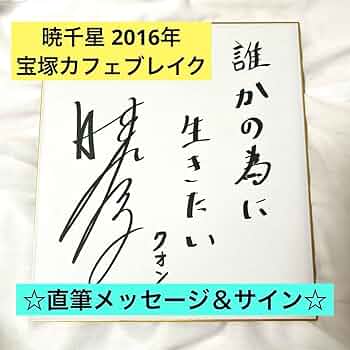 暁千星 2016年
宝塚カフェブレイク
誰かの為に
生きたい
クオン
☆直筆メッセージ&サイン☆